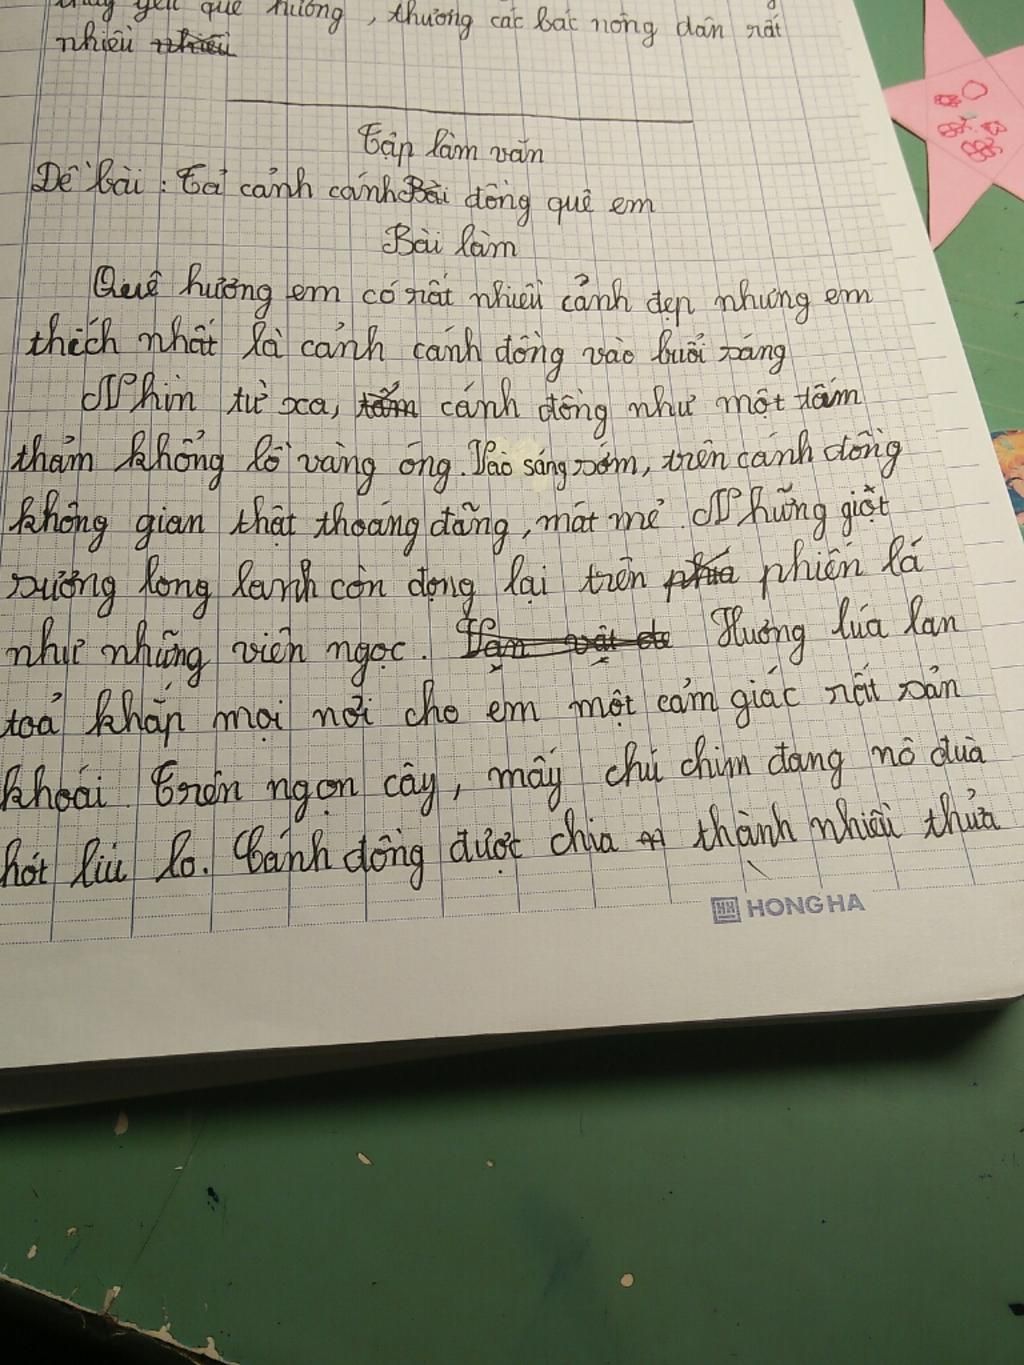 yêu quê hương, thương các bác nông dân rất
nhiều nhiều
Tập làm văn
Đề bài: Tả cảnh cánh Bài đồng quê em
Bài làm
Quê hương em có rất nhiều cảnh đẹp nhưng em
thích nhất là cảnh cánh đồng vào buổi sáng
Nhìn từ xa, tấm cánh đồng như một tấm
thảm khổng lồ vàng óng. Vào sáng sớm, trên cánh đồng
không gian thật thoáng đãng, mát mẻ. Những giọt
sương long lanh còn đọng lại trên phía phiến lá
như những viên ngọc. Hương lúa lan
toả khắp mọi nơi cho em một cảm giác rất sản
khoái. Trên ngọn cây, mấy chú chim đang nô đùa
hót líu lo. Cánh đồng được chia thành nhiều thửa
HONG HA